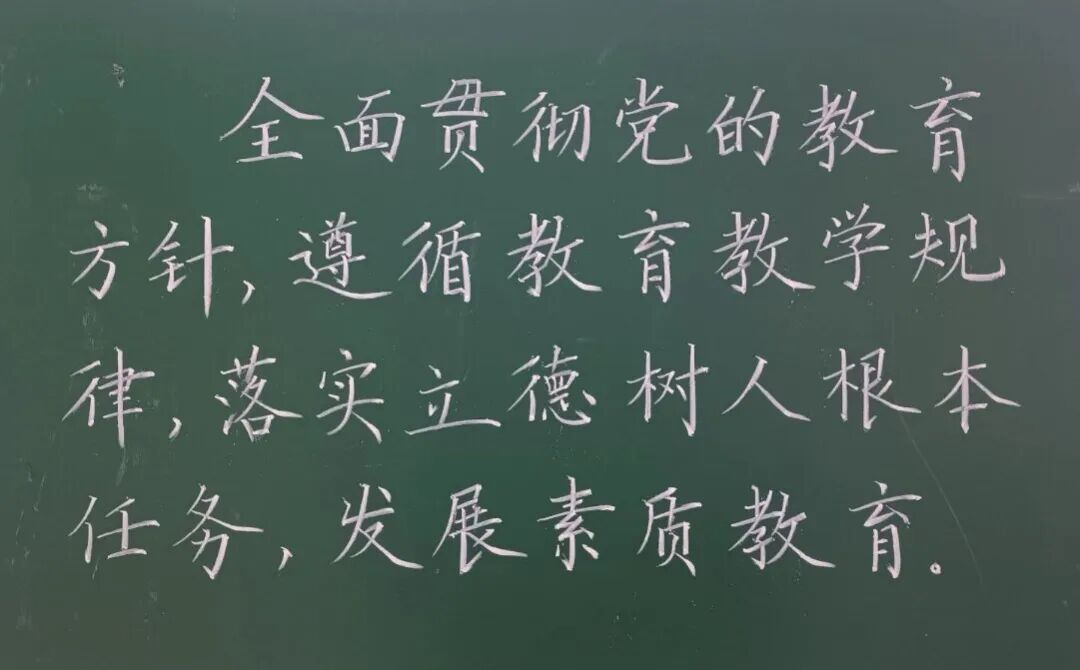 全面贯彻党的教育
方针,遵循教育教学规
律,落实立德树人根本
任务,发展素质教育。